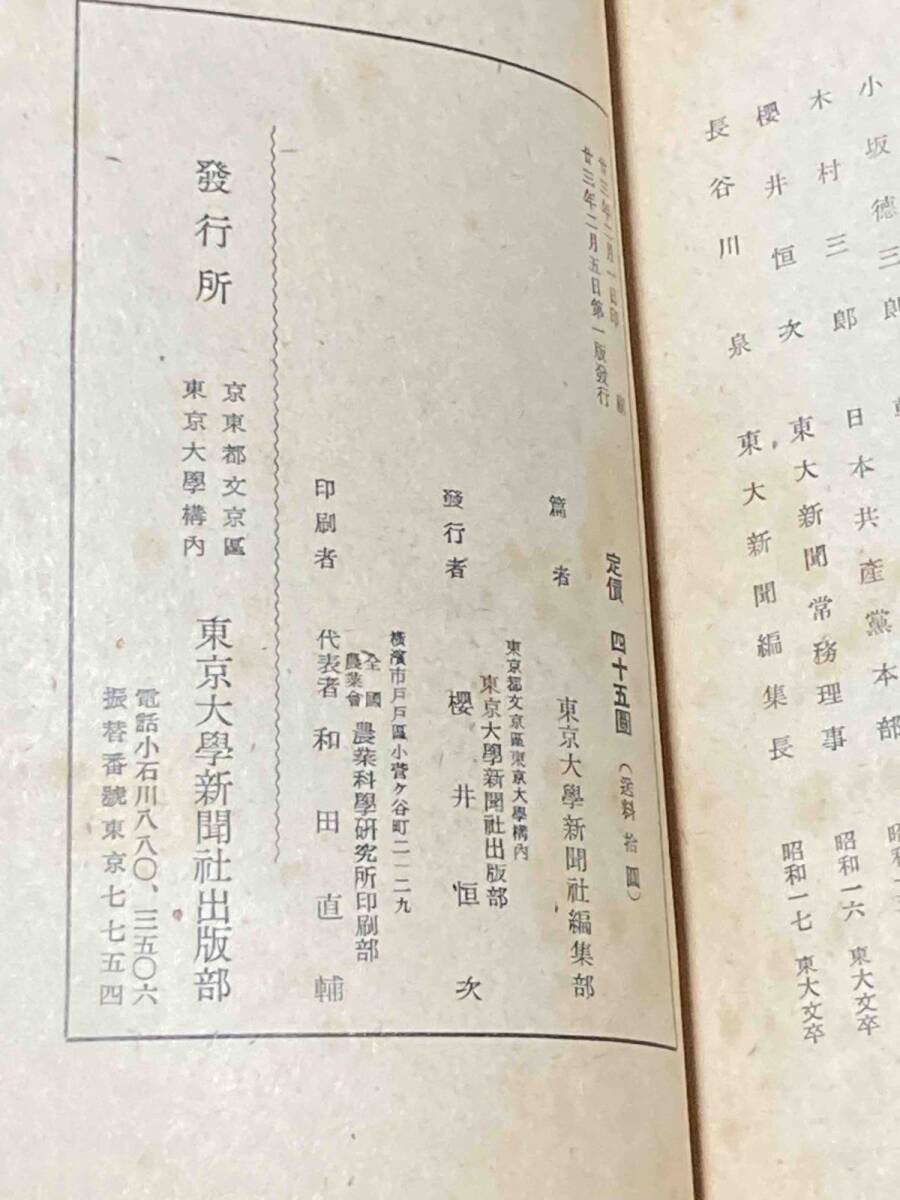 小坂德三郎
木村三郎 日本共產黨本部
櫻井恒次 東大新聞常務理事 昭和一六 東大文卒
長谷川泉 東大新聞編集長 昭和一七 東大文卒
廿三年二月一日印刷
廿三年二月五日第一版發行
定價 四十五圓 (送料 拾圓)
篇者 東京大學新聞社編集部
東京都文京區東京大學構內
東京大學新聞社出版部
發行者 櫻井恒次
橫濱市戶戶區小菅ヶ谷町二一二九
全國農業會 農業科學硏究所印刷部
印刷者 代表者 和田直輔
發行所
京東都文京區
東京大學構內
東京大學新聞社出版部
電話小石川八八〇、三五〇六
振替番號東京七七五四